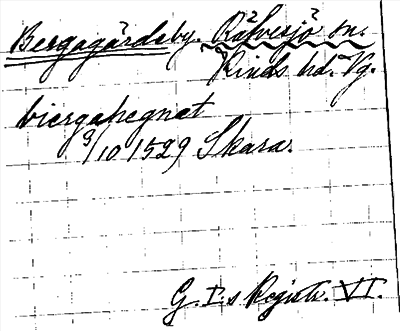 Bergagärdeby. Rålvesjö sn.
Kinds hd. Vg.
biergahegnat
9/10 1529 Skara.
G. I.s Registr. VI.